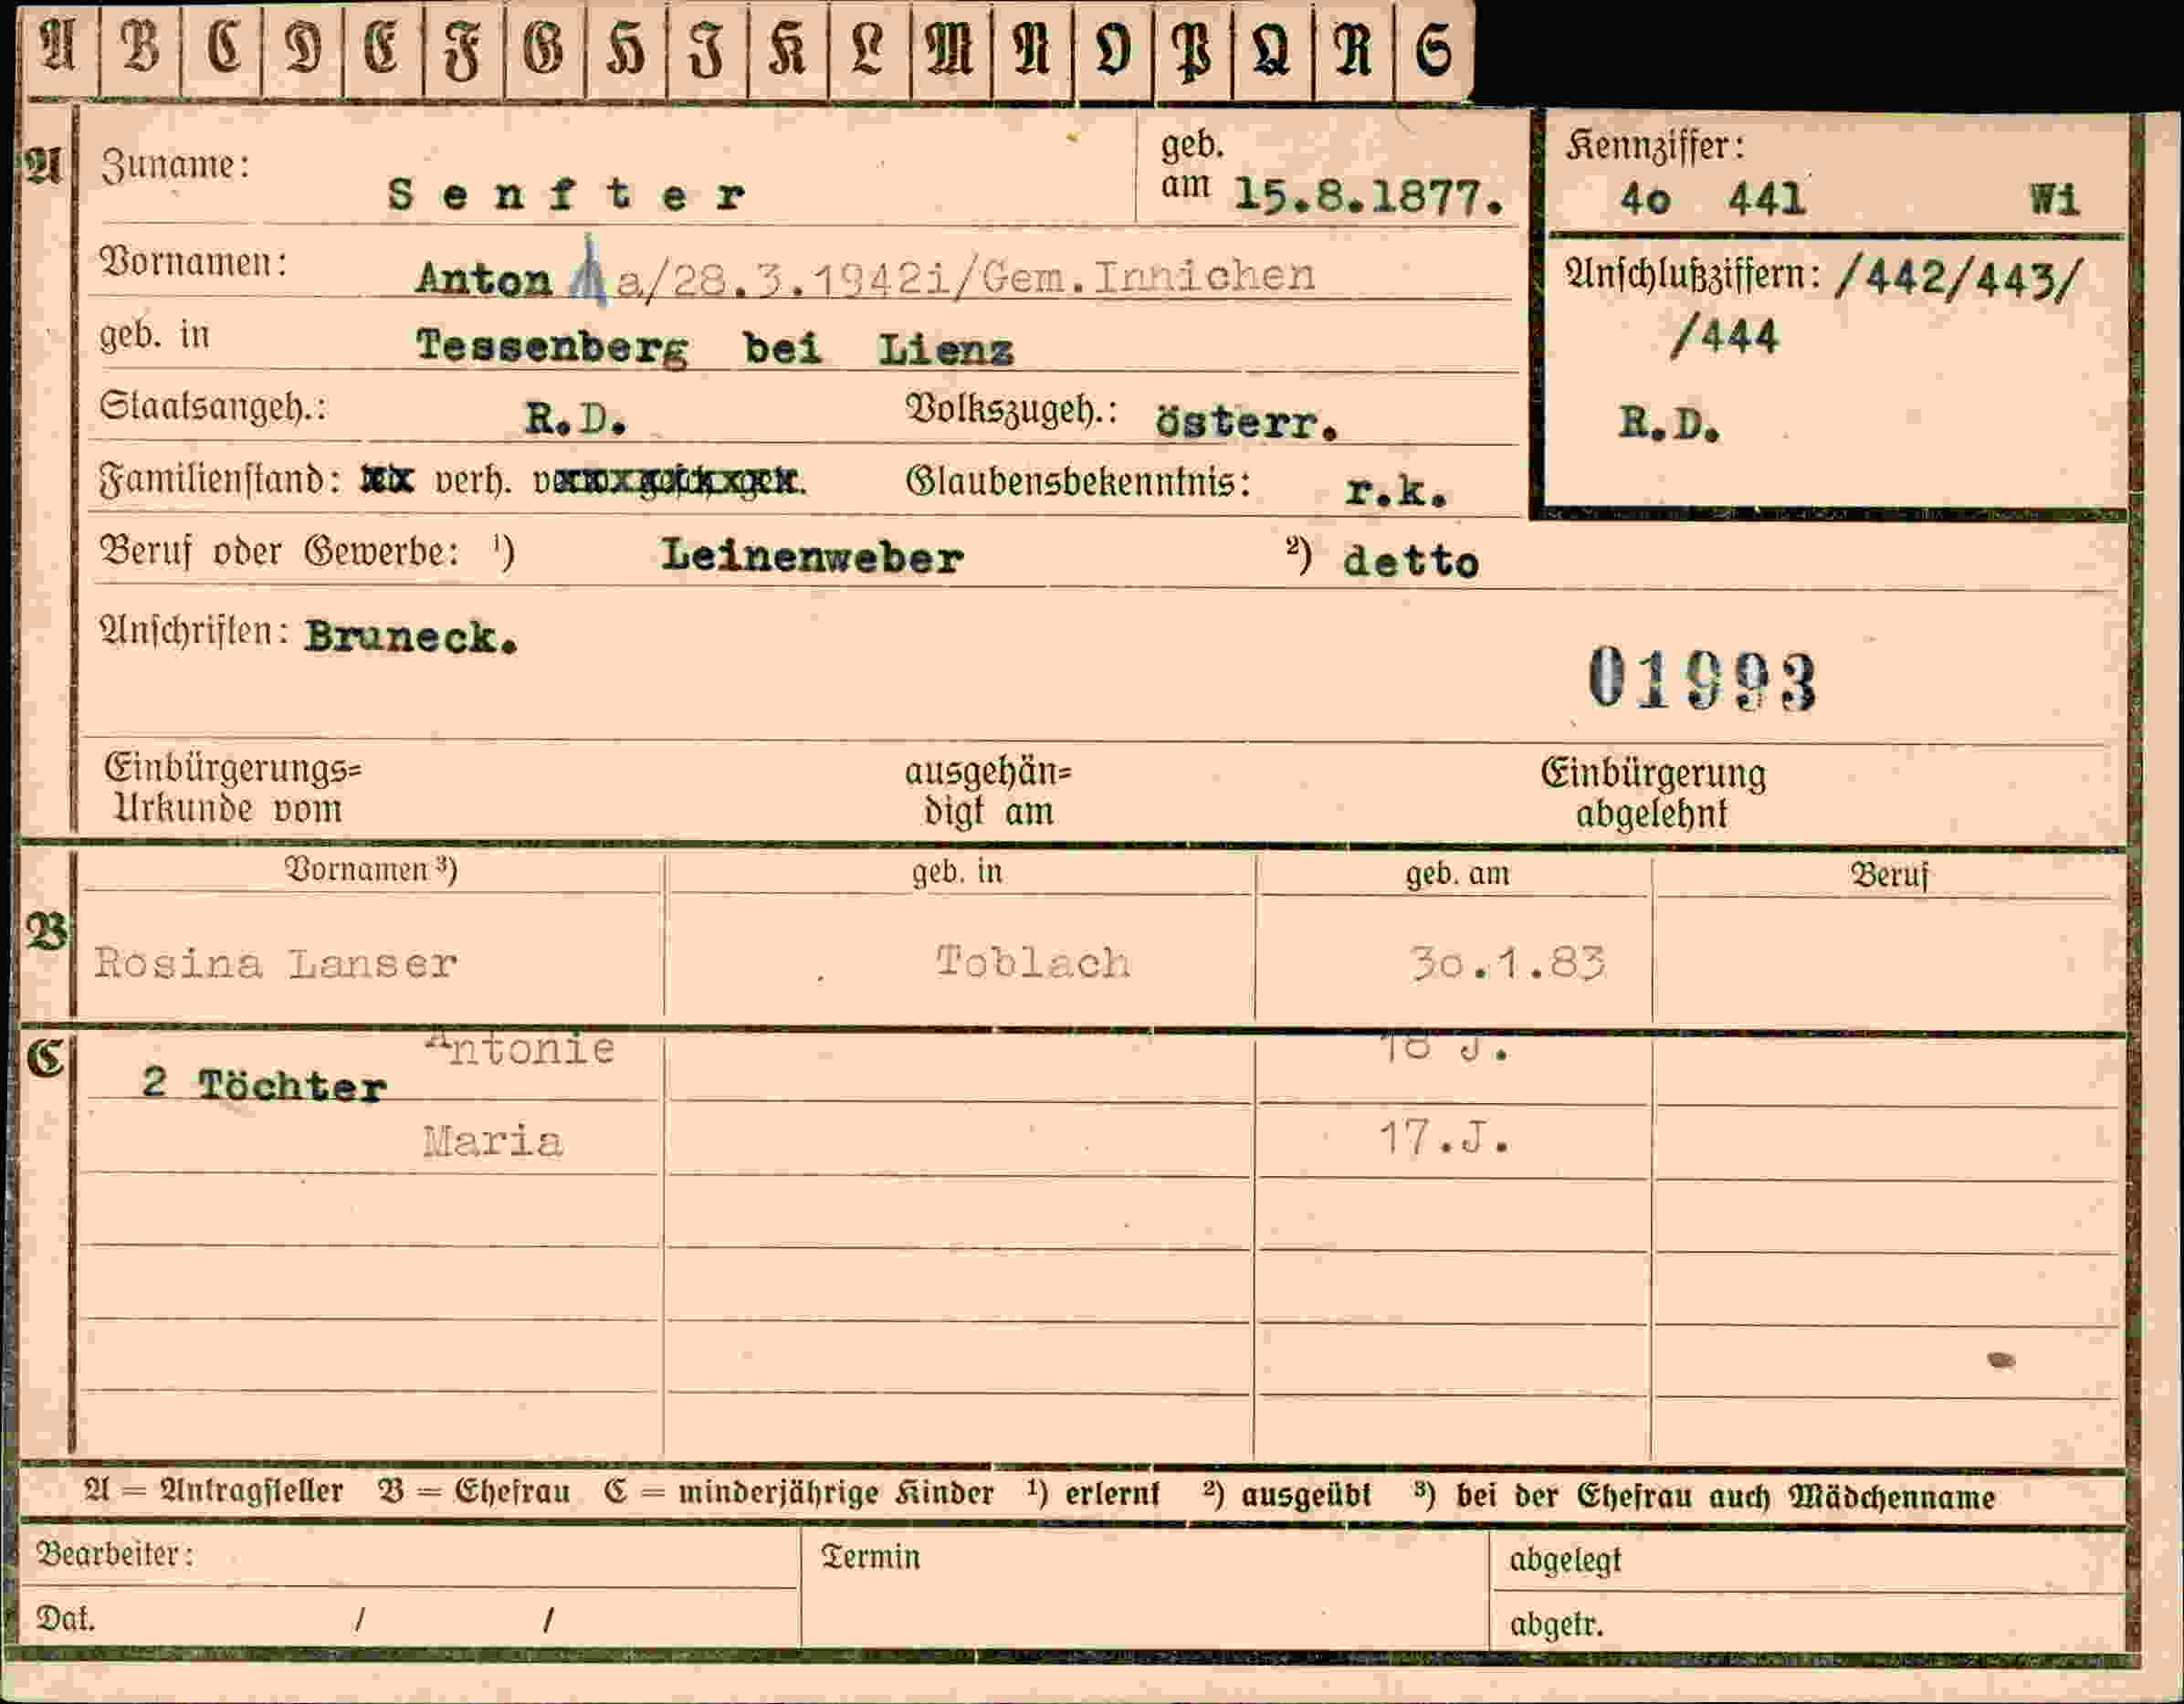 A B C D E F G H J K L M N O P Q R S
A Zuname: Senfter geb. am 15.8.1877. Kennziffer: 4o 441 Wi
Vornamen: Anton A a/28.3.1942i/Gem.Innichen Anschlußziffern: /442/443/
/444
geb. in Tessenberg bei Lienz
Staatsangeh.: R.D. Volkszugeh.: österr. R.D.
Familienstand: verh. Glaubensbekenntnis: r.k.
Beruf oder Gewerbe: ¹) Leinenweber ²) detto
Anschriften: Bruneck.
01993
Einbürgerungs= ausgehän= Einbürgerung
Urkunde vom digt am abgelehnt
Vornamen ³) geb. in geb. am Beruf
B Rosina Lanser Toblach 3o.1.83
C Antonie 18 J.
2 Töchter
Maria 17.J.
A = Antragsteller B = Ehefrau C = minderjährige Kinder ¹) erlernt ²) ausgeübt ³) bei der Ehefrau auch Mädchenname
Bearbeiter: Termin abgelegt
Dat. / / abgetr.